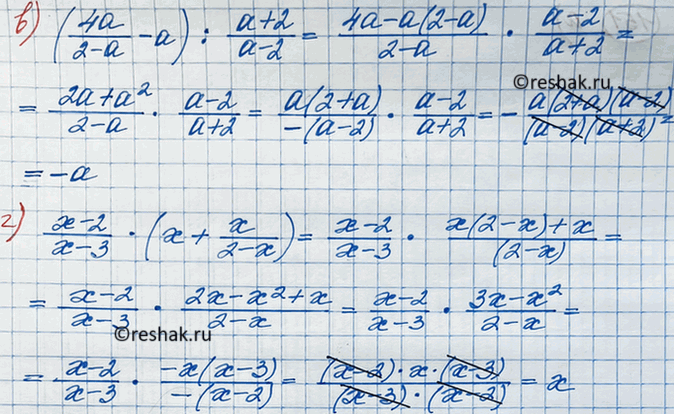 в) (4a/(2-a) - a) : (a+2)/(a-2) = (4a-a(2-a))/(2-a) · (a-2)/(a+2) =
©reshak.ru
= (2a+a²)/(2-a) · (a-2)/(a+2) = a(2+a)/(-(a-2)) · (a-2)/(a+2) = - a(2+a)(a-2)/((a-2)(a+2)) =
= -a
г) (x-2)/(x-3) · (x + x/(2-x)) = (x-2)/(x-3) · (x(2-x)+x)/((2-x)) =
= (x-2)/(x-3) · (2x-x²+x)/(2-x) = (x-2)/(x-3) · (3x-x²)/(2-x) =
©reshak.ru
= (x-2)/(x-3) · (-x(x-3))/(-(x-2)) = ((x-2)·x·(x-3))/((x-3)·(x-2)) = x